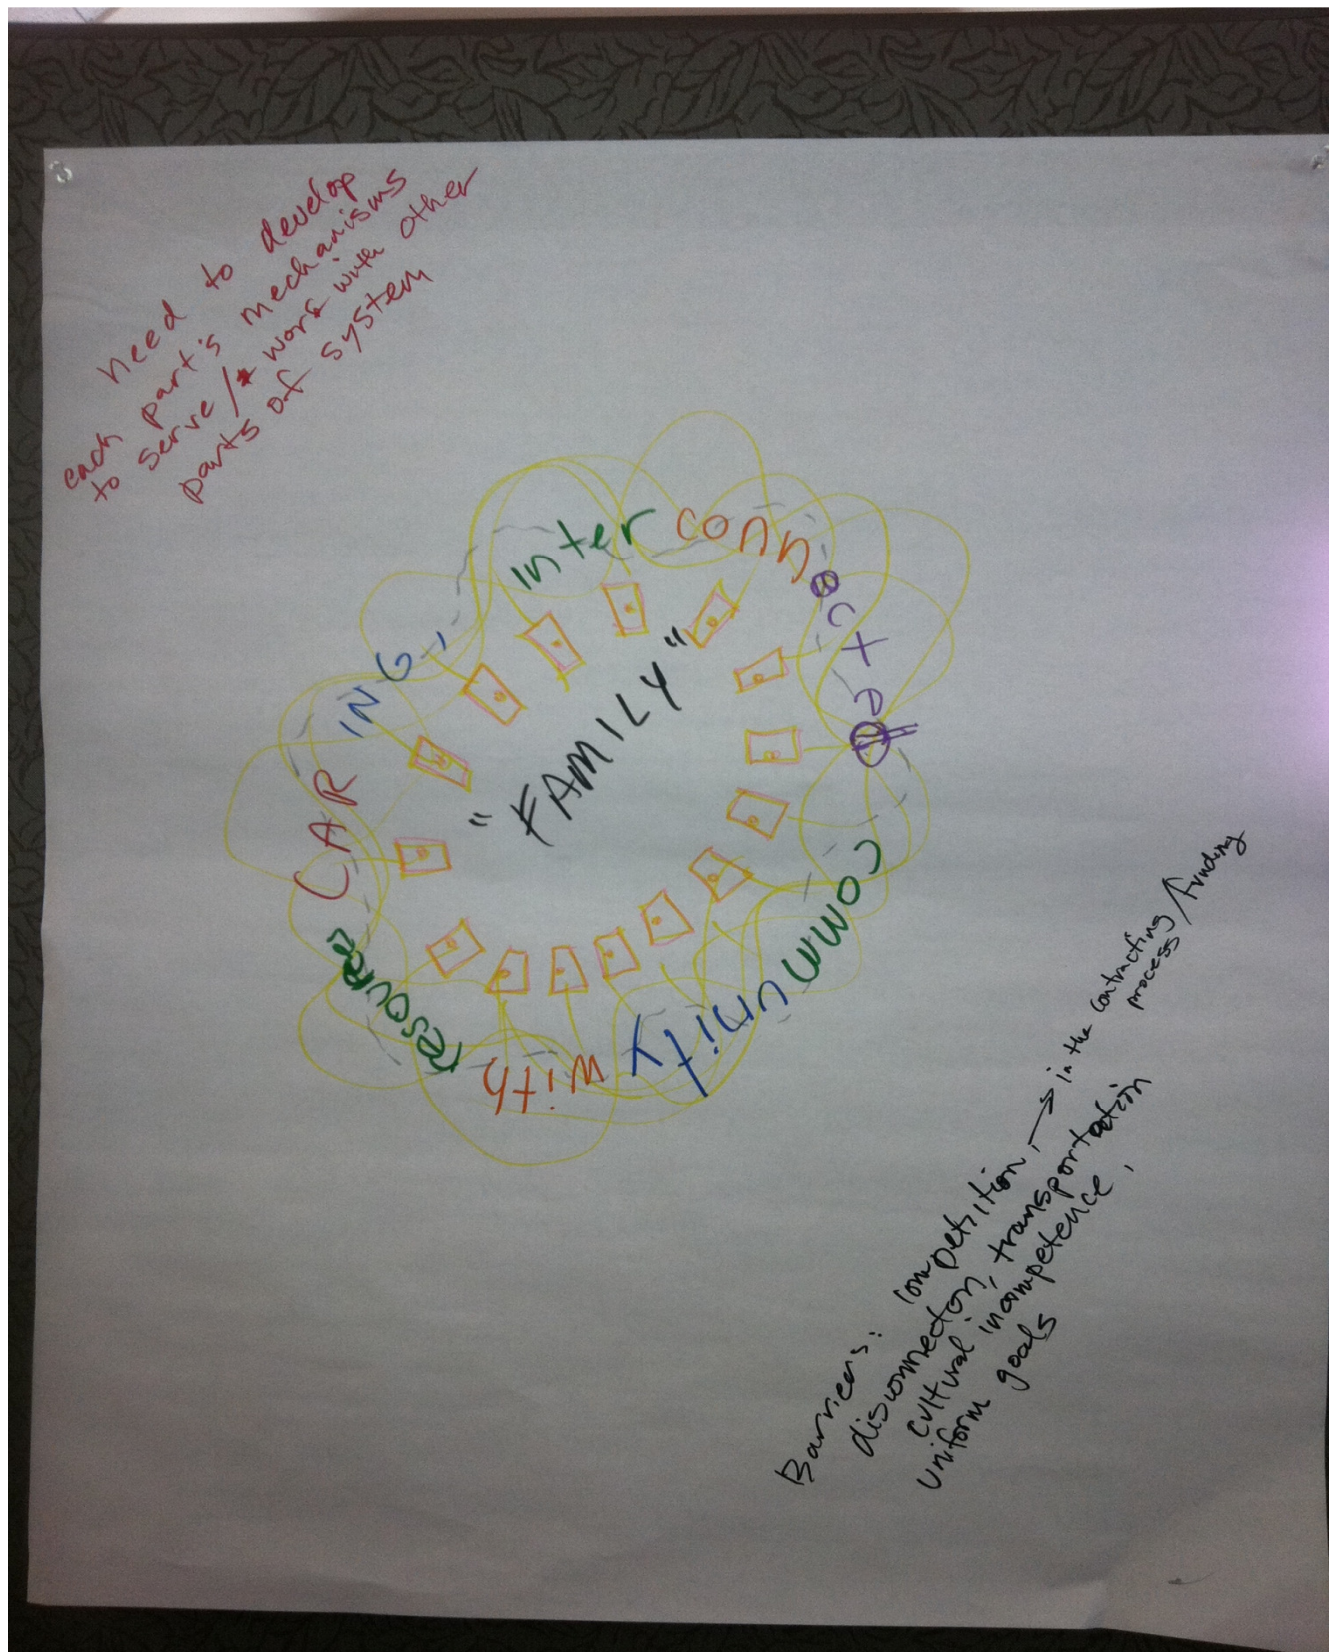 need to develop
each part's mechanisms
to serve/ work with other
parts of system
CARING, interconnected community with resources
"FAMILY"
Barriers: competition, → in the contracting/funding
process
disconnection, transportation
cultural incompetence,
uniform goals